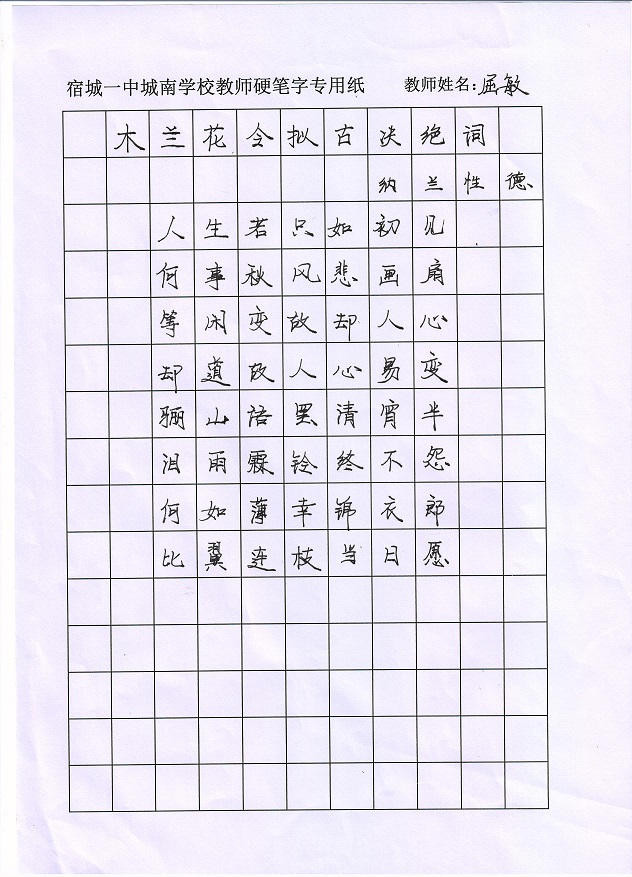 宿城一中城南学校教师硬笔字专用纸 教师姓名:屈敏
木兰花令拟古决绝词
纳兰性德
人生若只如初见
何事秋风悲画扇
等闲变故却人心
却道故人心易变
骊山语罢清宵半
泪雨霖铃终不怨
何如薄幸锦衣郎
比翼连枝当日愿